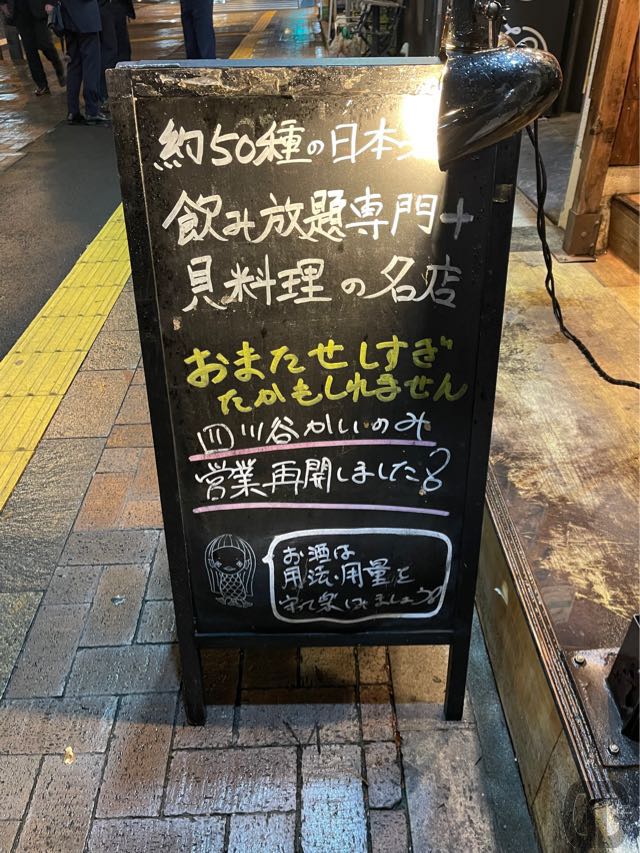 約50種の日本
飲み放題専門＋
貝料理の名店
おまたせしすぎ
たかもしれません
四ツ谷かいのみ
営業再開しました！
お酒は
用法・用量を
守って楽しみましょう